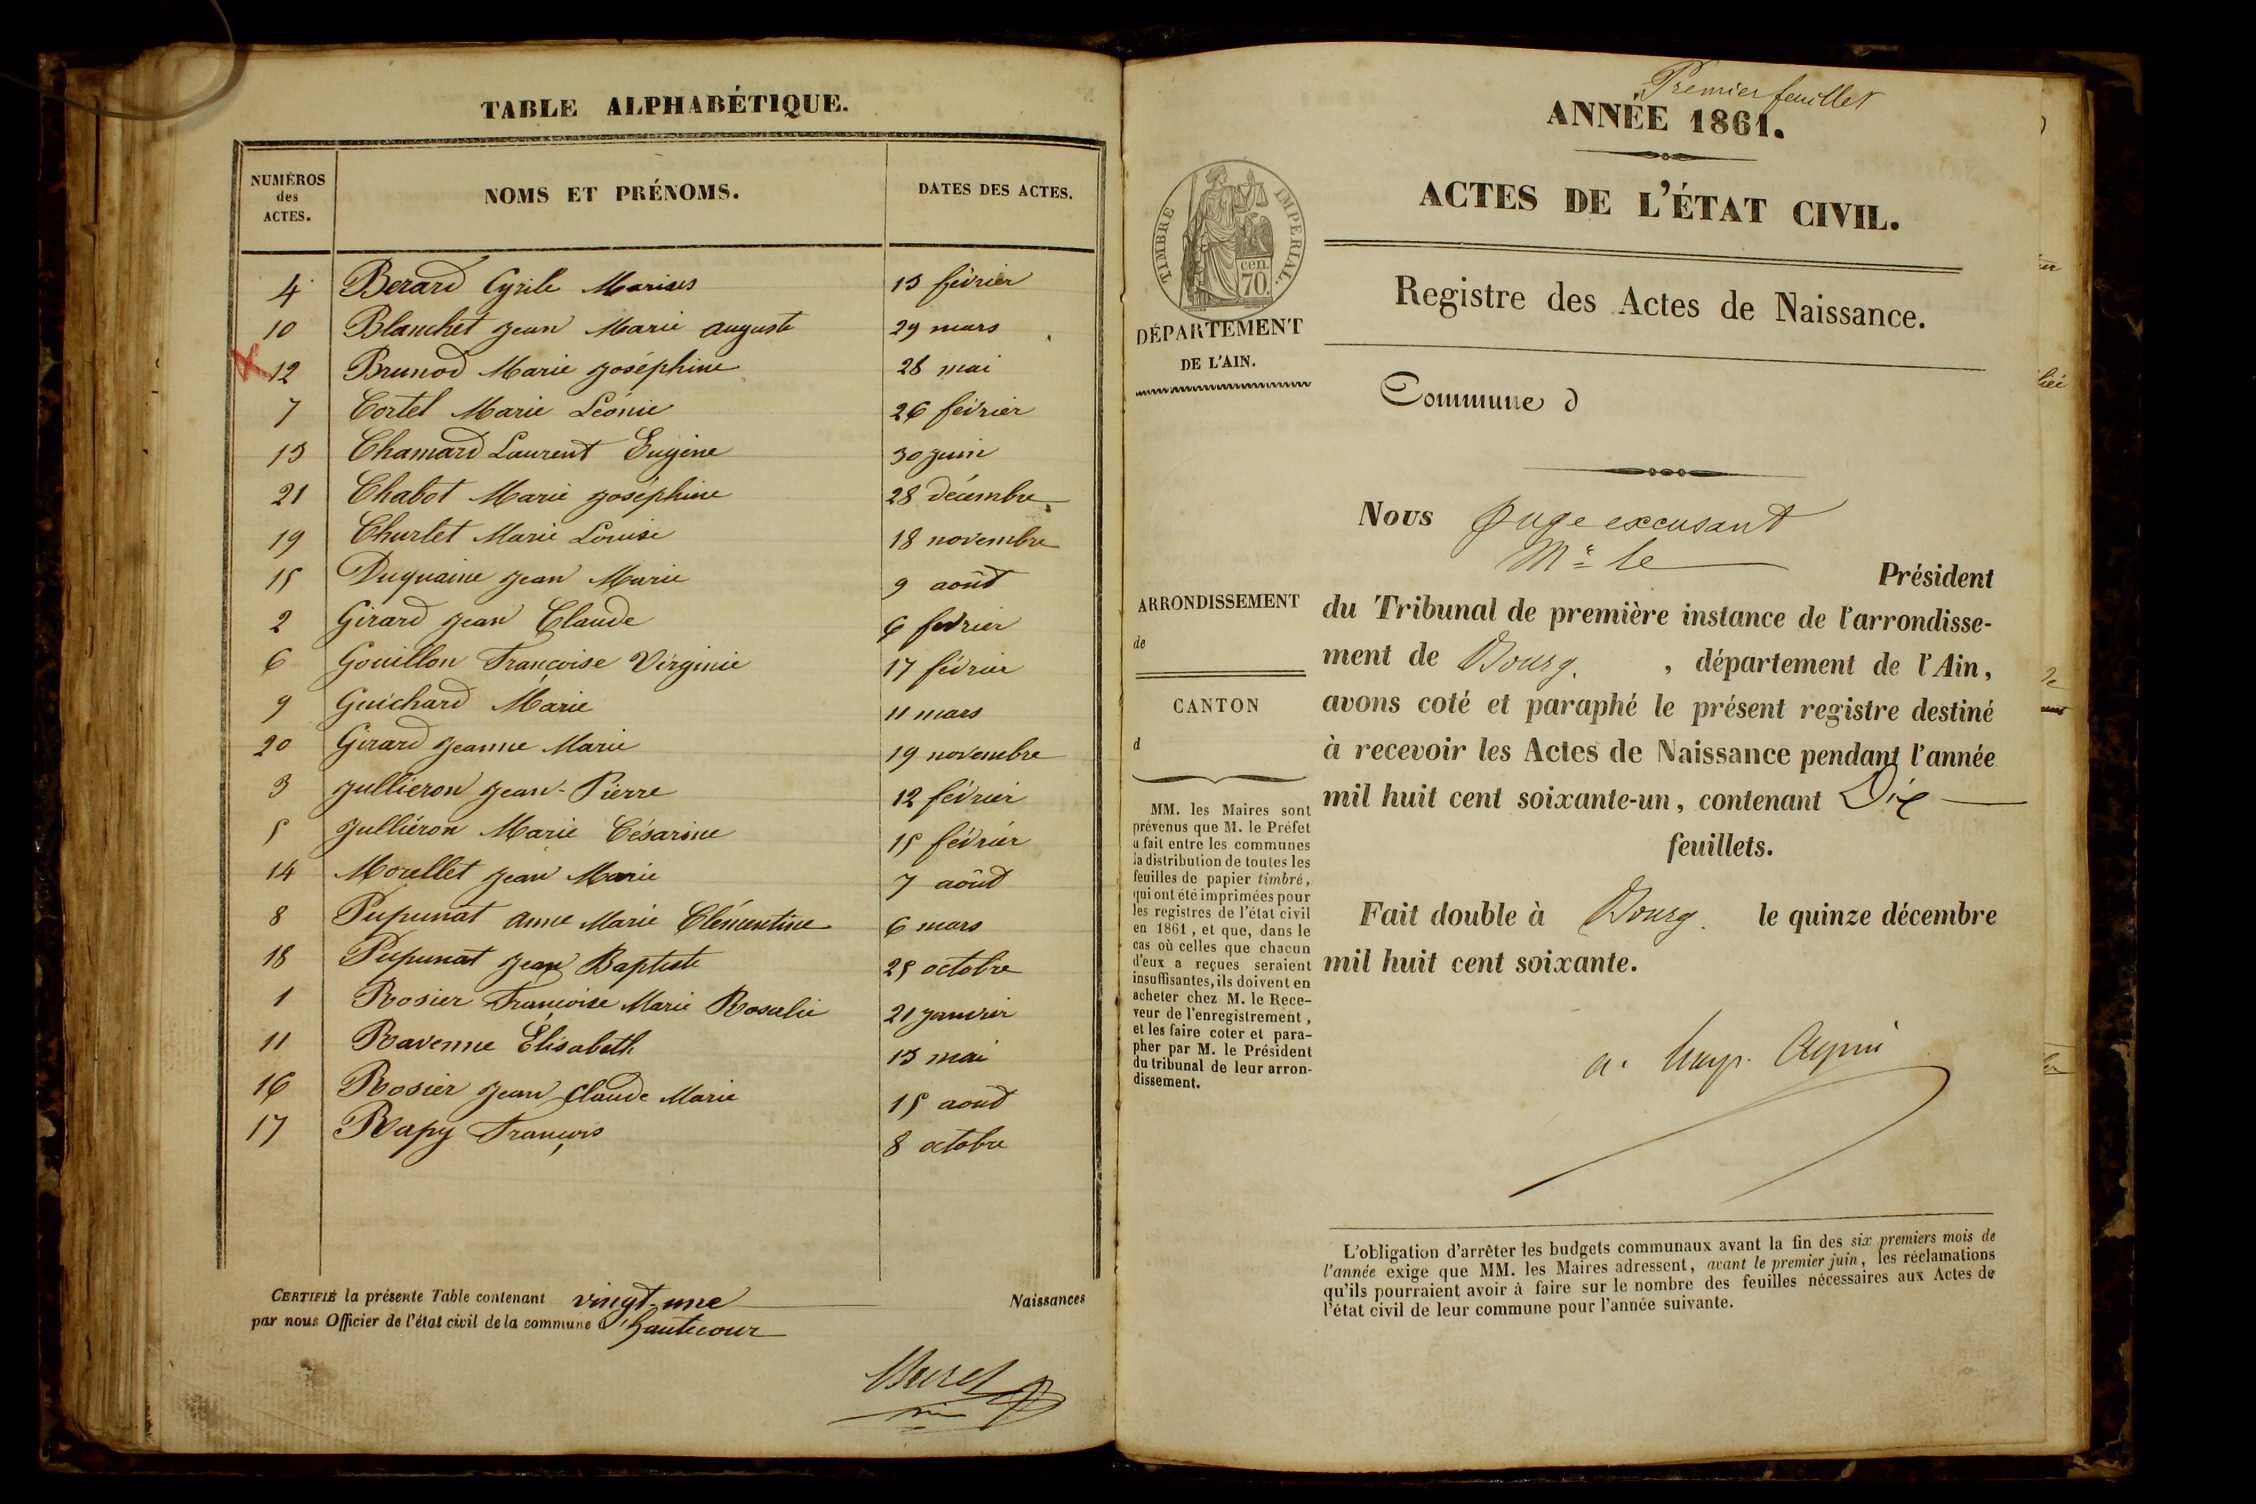 TABLE ALPHABÉTIQUE.
NUMÉROS des ACTES.
NOMS ET PRÉNOMS.
DATES DES ACTES.
4 Berard Cyrile Marius 13 février
10 Blanchet jean Marie auguste 29 mars
12 Brunod Marie joséphine 28 mai
7 Cortel Marie Léonie 26 février
13 Chamard Laurent Eugène 30 juin
21 Chabot Marie joséphine 28 décembre
19 Churlet Marie Louise 18 novembre
15 Duquaine jean Marie 9 août
2 Girard jean Claude 6 février
6 Gouillon Françoise Virginie 17 février
9 Guichard Marie 11 mars
20 Girard jeanne Marie 19 novembre
3 jullieron jean-Pierre 12 février
5 julliéron Marie Césarine 15 février
14 Morellet jean Marie 7 août
8 Pupunat anne Marie Clémentine 6 mars
18 Pupunat jean Baptiste 25 octobre
1 Rosier Françoise Marie Rosalie 21 janvier
11 Ravenne Élisabeth 13 mai
16 Rosier jean Claude Marie 15 août
17 Rapy François 8 octobre
CERTIFIÉ la présente Table contenant vingt-une Naissances
par nous Officier de l'état civil de la commune d'hautecour
Premier feuillet
ANNÉE 1861.
ACTES DE L'ÉTAT CIVIL.
TIMBRE IMPERIAL.
cen.
70.
Registre des Actes de Naissance.
DÉPARTEMENT
DE L'AIN.
Commune d
Nous juge excusant
Mr le
Président
du Tribunal de première instance de l'arrondisse-
ment de Bourg. , département de l'Ain,
avons coté et paraphé le présent registre destiné
à recevoir les Actes de Naissance pendant l'année
mil huit cent soixante-un, contenant Dix
feuillets.
Fait double à Bourg. le quinze décembre
mil huit cent soixante.
ARRONDISSEMENT
de
CANTON
d
MM. les Maires sont
prévenus que M. le Préfet
a fait entre les communes
la distribution de toutes les
feuilles de papier timbré,
qui ont été imprimées pour
les registres de l'état civil
en 1861, et que, dans le
cas où celles que chacun
d'eux a reçues seraient
insuffisantes, ils doivent en
acheter chez M. le Rece-
veur de l'enregistrement,
et les faire coter et para-
pher par M. le Président
du tribunal de leur arron-
dissement.
L'obligation d'arrêter les budgets communaux avant la fin des six premiers mois de
l'année exige que MM. les Maires adressent, avant le premier juin, les réclamations
qu'ils pourraient avoir à faire sur le nombre des feuilles nécessaires aux Actes de
l'état civil de leur commune pour l'année suivante.